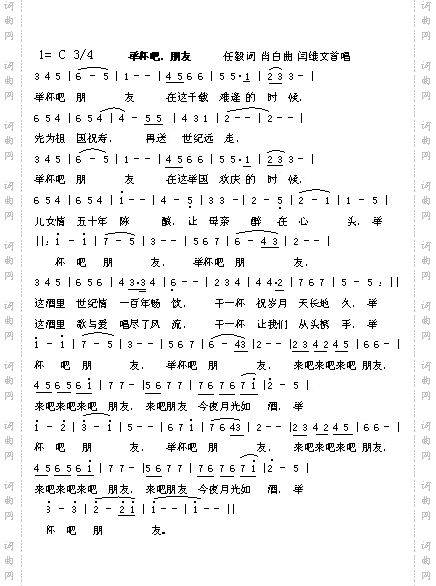 1= C 3/4 举杯吧，朋友 任毅词 肖白曲 闫维文首唱
3 4 5 | 6 - 5 | 1 - - | 4 5 6 6 | 5 5 · 1 | 2 3 3 - |
举杯吧 朋 友 在这千载 难逢的 时 候，
6 5 4 | 6 5 4 | 4 - 5 5 | 4 3 1 | 2 - - | 2 - - |
先为祖 国祝寿， 再送 世纪远 走，
3 4 5 | 6 - 5 | 1 - - | 4 5 6 6 | 5 5 · 1 | 2 3 3 - |
举杯吧 朋 友 在这举国 欢庆的 时 候，
6 5 4 | 6 5 4 | 1 - - | 4 - 5 | 3 3 - | 2 - 5 | 2 - 1 | 1 - 5 |
儿女情 五十年 陈 酿，让 母亲 醉 在 心 头，举
||: 1 - 1 | 7 - 5 | 3 - - | 5 6 7 | 6 - 4 3 | 2 - - |
杯 吧 朋 友， 举杯吧 朋 友，
3 4 5 | 6 5 6 | 4 3 · 3 4 | 6 - - | 2 3 4 | 4 4 · 2 | 7 6 7 | 5 - 5 : ||
这酒里 世纪情 一百年畅 饮， 干一杯 祝岁月 天长地 久，举
这酒里 歌与爱 唱尽了风 流， 干一杯 让我们 从头 手，举
1 - 1 | 7 - 5 | 3 - - | 5 6 7 | 6 - 43 | 2 - - | 2 3 4 2 4 5 | 6 6 - |
杯 吧 朋 友， 举杯吧 朋 友， 来吧来吧来吧 朋友，
4 5 6 5 6 1 | 7 7 - | 5 6 7 7 | 7 6 7 6 7 1 | 2 - 5 |
来吧来吧来吧 朋友，来吧朋友 今夜月光如 酒，举
1 - 2 | 3 - 1 | 5 - - | 6 7 1 | 7 6 43 | 2 - - | 2 3 4 2 4 5 | 6 6 - |
杯 吧 朋 友， 举杯吧 朋 友， 来吧来吧来吧 朋友，
4 5 6 5 6 1 | 7 7 - | 5 6 7 7 | 7 6 7 6 7 1 | 2 - 5 |
来吧来吧来吧 朋友，来吧朋友 今夜月光如 酒，举
3 - 3 | 2 - 2 1 | 1 - - | 1 - - ||
杯 吧 朋 友。
词曲网